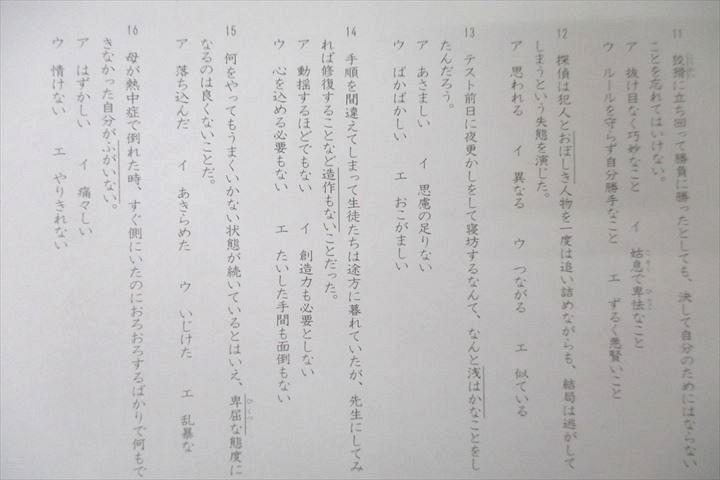 11 狡猾に立ち回って勝負に勝ったとしても、決して自分のためにはならない
ことを忘れてはいけない。
ア 抜け目なく巧妙なこと イ 姑息で卑怯なこと
ウ ルールを守らず自分勝手なこと エ ずるく悪賢いこと
12 探偵は犯人とおぼしき人物を一度は追い詰めながらも、結局は逃がして
しまうという失態を演じた。
ア 思われる イ 異なる ウ つながる エ 似ている
13 テスト前日に夜更かしをして寝坊するなんて、なんと浅はかなことをし
たんだろう。
ア あさましい イ 思慮の足りない
ウ ばかばかしい エ おこがましい
14 手順を間違えてしまって生徒たちは途方に暮れていたが、先生にしてみ
れば修復することなど造作もないことだった。
ア 動揺するほどでもない イ 創造力も必要としない
ウ 心を込める必要もない エ たいした手間も面倒もない
15 何をやってもうまくいかない状態が続いているとはいえ、卑屈な態度に
なるのは良くないことだ。
ア 落ち込んだ イ あきらめた ウ いじけた エ 乱暴な
16 母が熱中症で倒れた時、すぐ側にいたのにおろおろするばかりで何もで
きなかった自分がふがいない。
ア はずかしい イ 痛々しい
ウ 情けない エ やりきれない